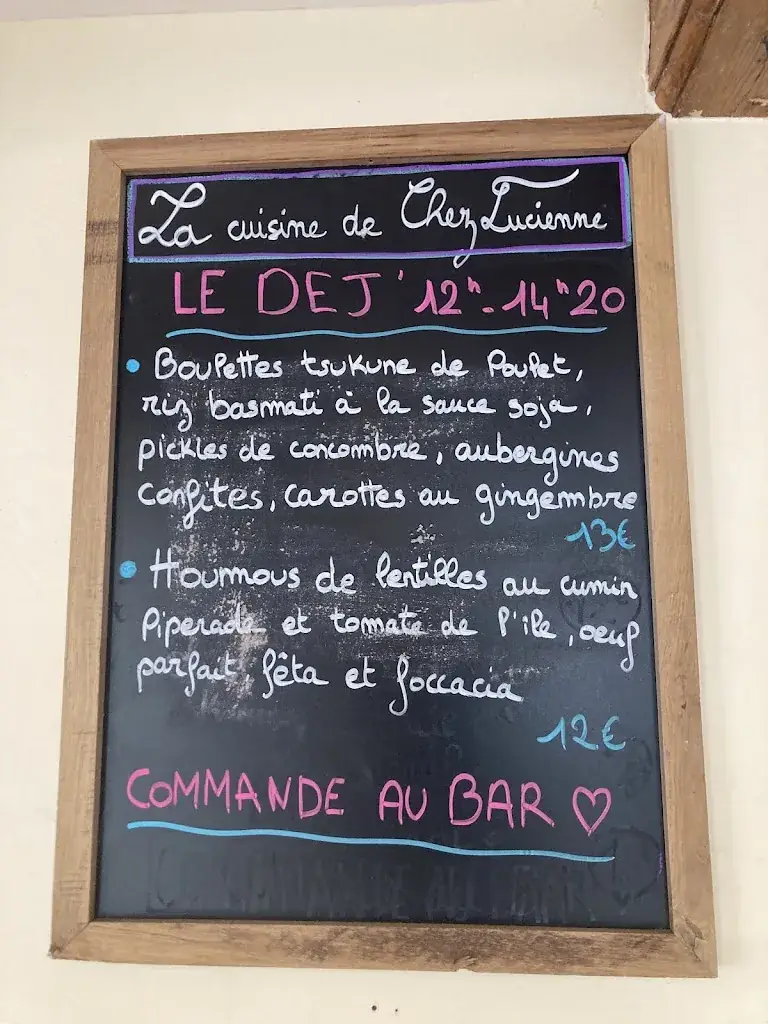 La cuisine de Chez Lucienne
LE DEJ' 12h - 14h20
• Boulettes tsukune de Poulet,
riz basmati à la sauce soja,
pickles de concombre, aubergines
confites, carottes au gingembre
13€
• Houmous de lentilles au cumin
Piperade et tomate de l'ile, oeuf
parfait, fêta et foccacia
12€
COMMANDE AU BAR ♡